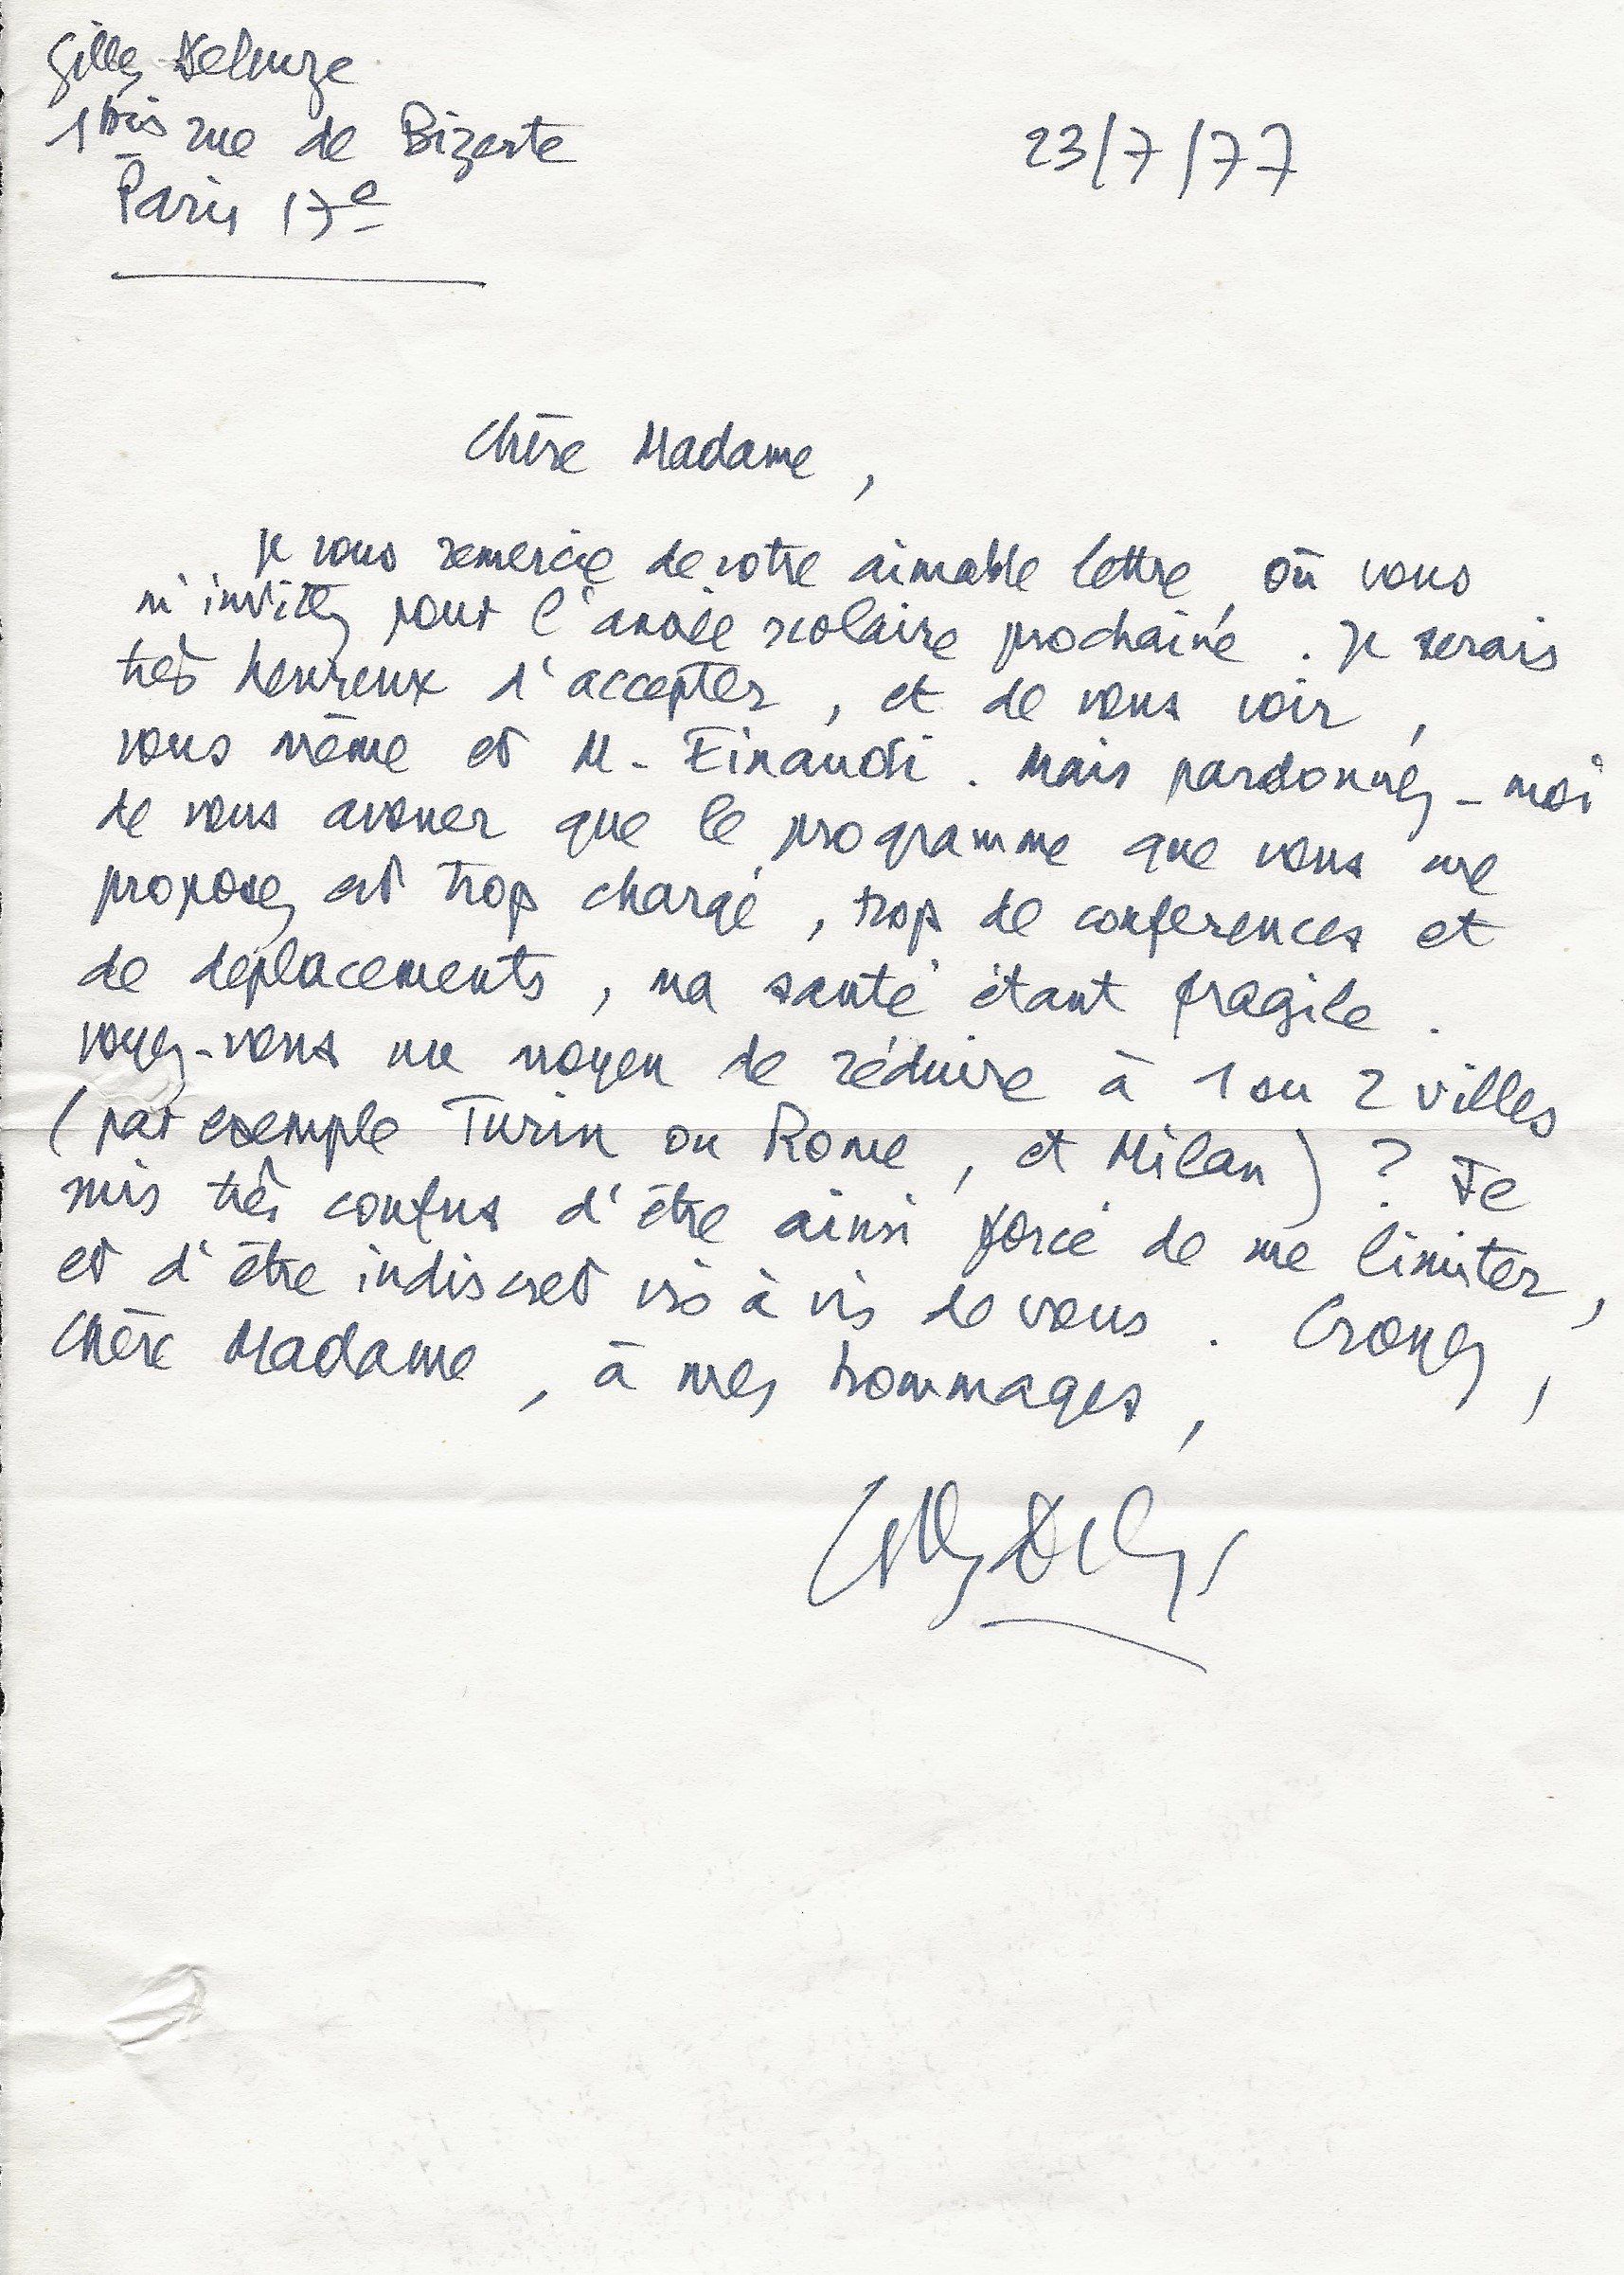 Gilles Deleuze
1 bis rue de Bizerte
Paris 17e
23/7/77
Chère Madame,
Je vous remercie de votre aimable lettre, où vous
m'invitez pour l'année scolaire prochaine. Je serais
très heureux d'accepter, et de vous voir,
vous même et M. Einaudi. Mais pardonnez-moi
de vous avouer que le programme que vous me
proposez est trop chargé, trop de conférences et
de déplacements, ma santé étant fragile.
Voyez-vous un moyen de réduire à 1 ou 2 villes
(par exemple Turin ou Rome, et Milan) ? Je
suis très confus d'être ainsi forcé de me limiter,
et d'être indiscret vis à vis de vous. Croyez,
Chère Madame, à mes hommages,
Gilles Deleuze